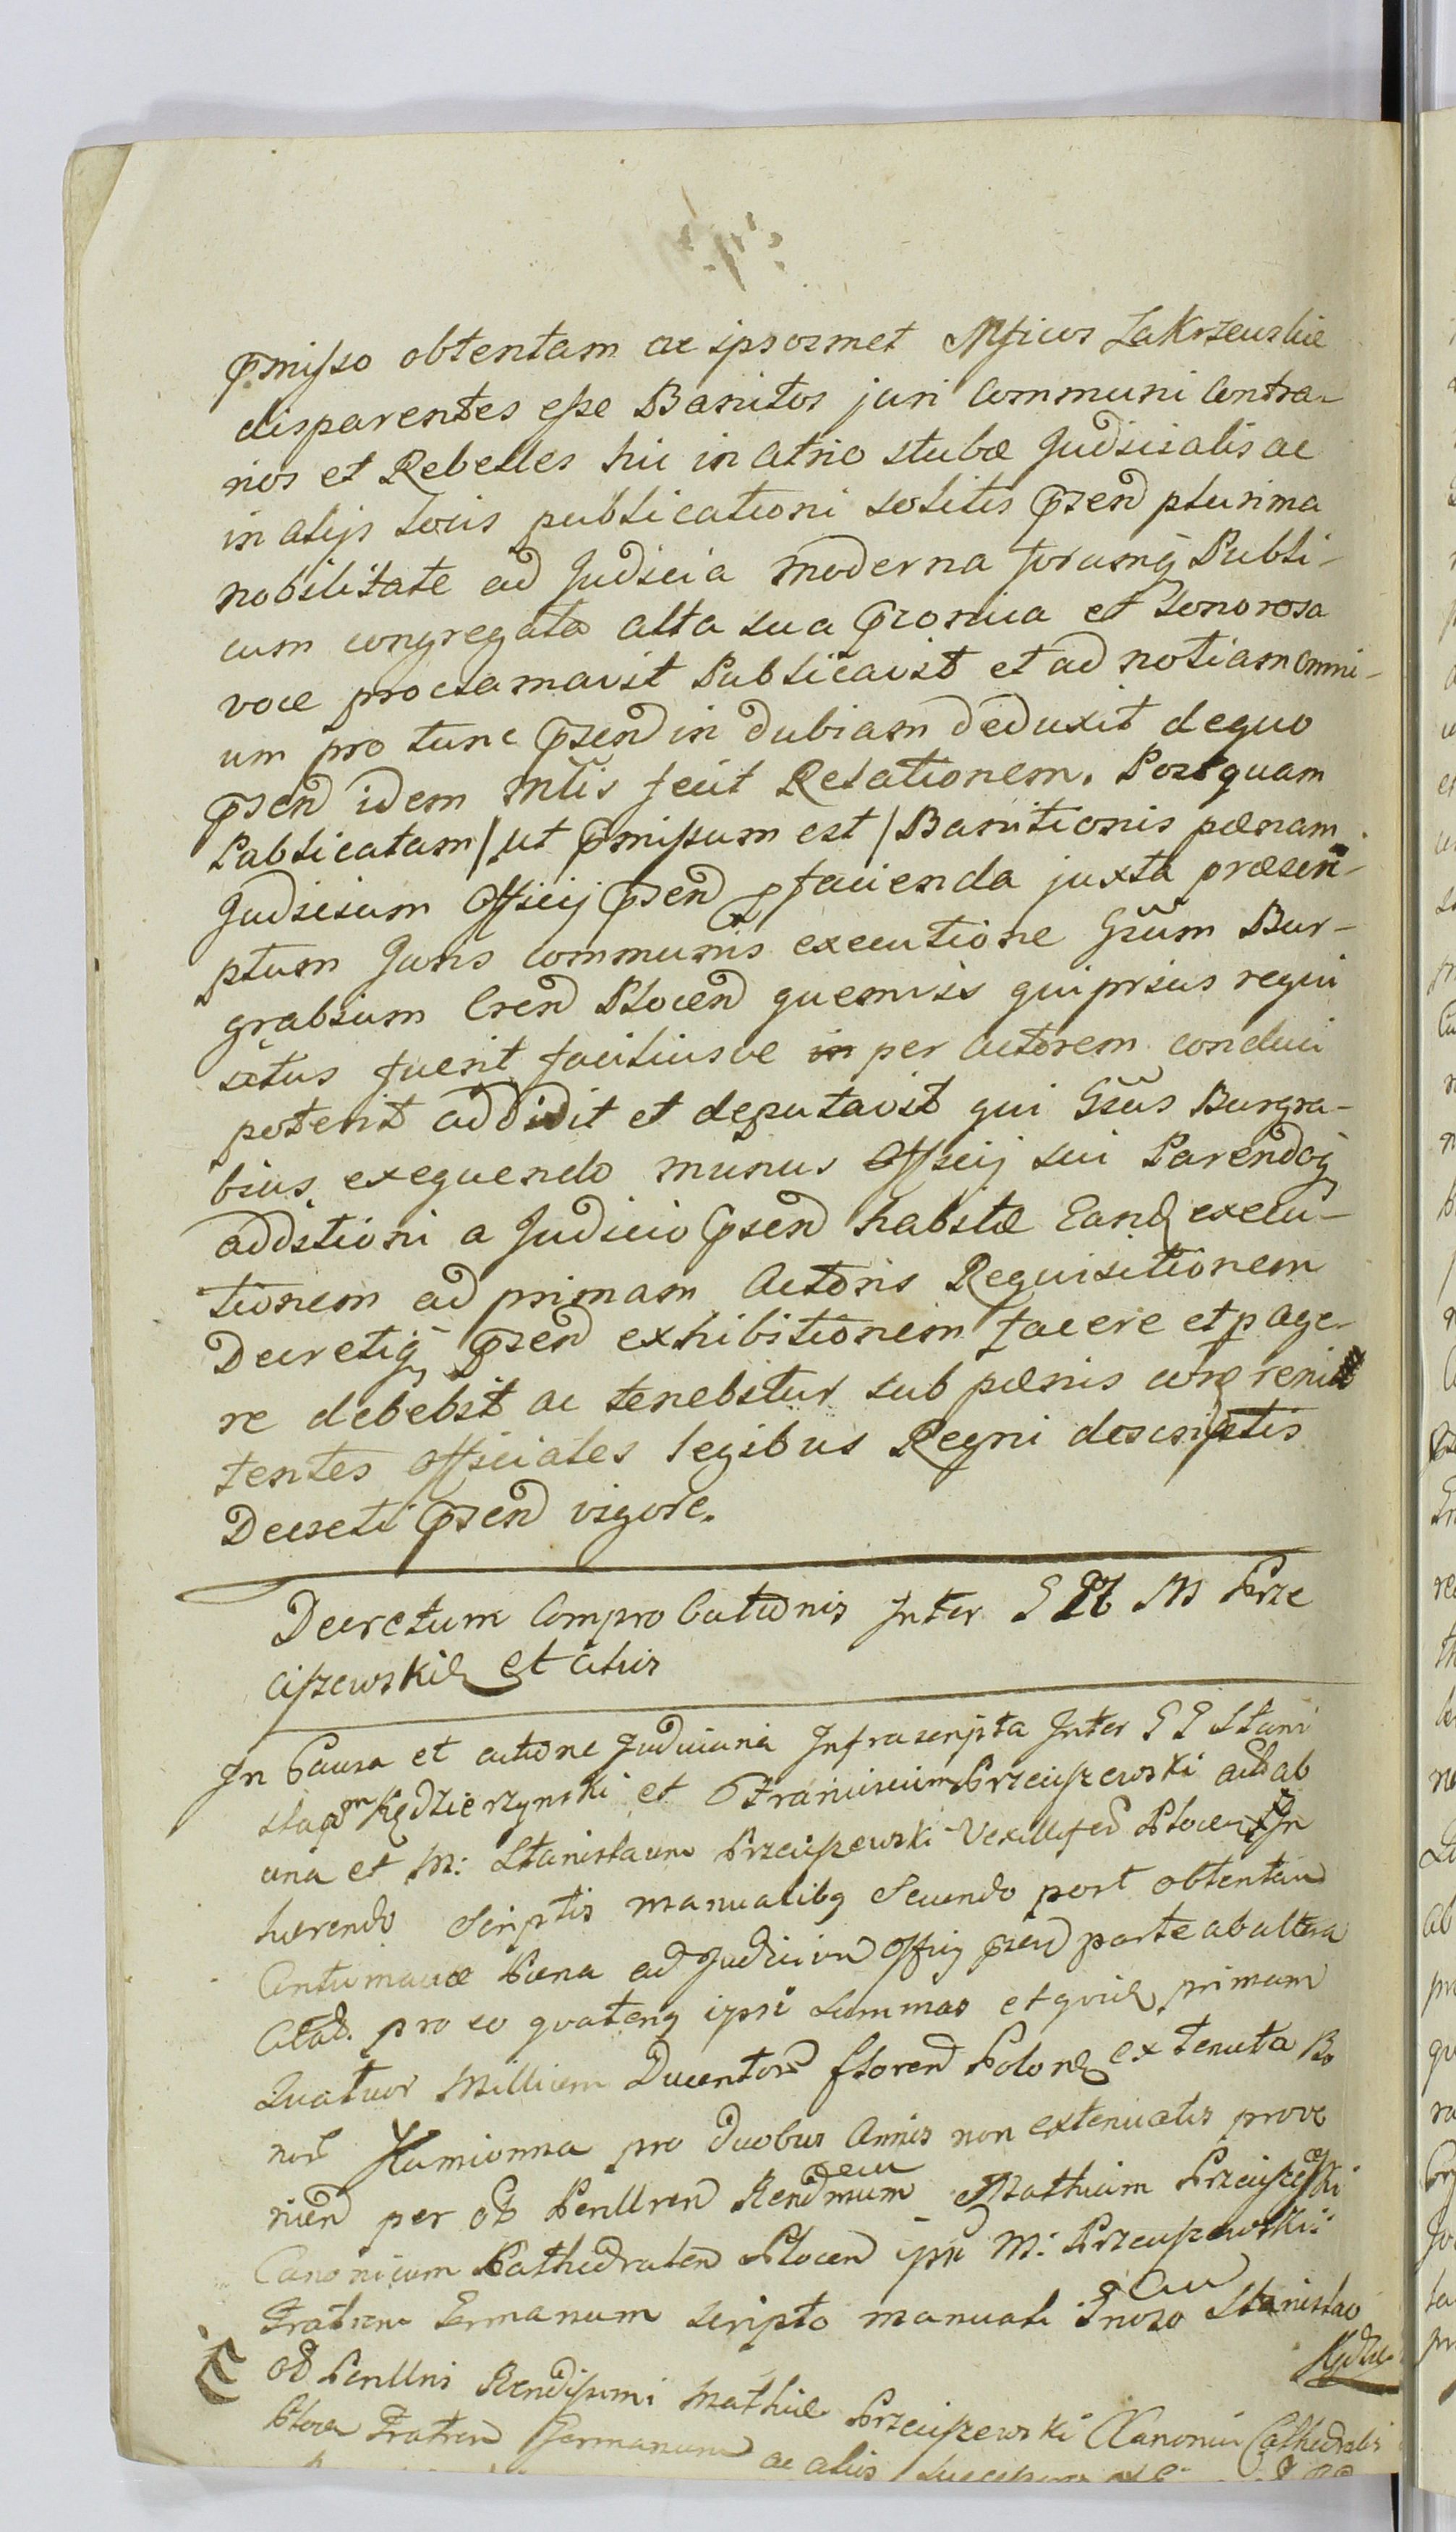 pmisso obtentam ac ipsosmet Mficos Zakrzewskie
disparentes esse Banitos juri Communi Contra-
rios et Rebelles hic in atrio stubæ Judicialis ac
in alijs locis publicationi solitis pzend plurima
nobilitate ad Judicia moderna forumq Publi-
cum congregata alta sua pzonica et sonorosa
voce proclamavit Publicavit et ad notiam omni-
um pro tunc pzend in dubiam deduxit de quo
pzend idem Mlis fecit Relationem. Postquam
Publicatam / ut pmissum est / Banitionis pænam
Judicium Officij pzend p facienda juxta præscri-
ptum Juris communis executione Gsum Bur-
grabium Cren Plocen quemvis qui prius requi
situs fuerit faciliusve per Actorem conduci
poterit addidit et deputavit qui Gsus Burgra-
bius exequendo munus Officij sui Parendoq
additioni a Judicio pzend habitæ Eand execu-
tionem ad primam Actoris Requisitionem
Decretiq pzend exhibitionem facere et page-
re debebit ac tenebitur sub pænis contra reni
tentes Officiales legibus Regni descriptis
Decreti pzend vigore.
Decretum Comprobationis Inter G M Prze
ciszewskie et alios
In Causa et actione Judiciaria Infrascripta Inter G G Stani
slaum Kędzierzynski et Franciscum Przeciszewski act ab
una et M: Stanislaum Przeciszewski Vexilliferd Plocen In
hærendo Scriptis manualibq Secundo post obtentam
Contumaciæ Pæna ad Judicium Officij pzend parte ab altera
Citat. pro eo quatenq ipsi Summas et quid primam
Quatuor Millium Ducentor floren Polon ex tenuta Bo
nor Kamionna pro duobus Annis non extenuatis prove
nien per Perillren Rendmum Mathiam Przeciszewski
Canonicum Cathedralen Plocen ipsi M: Przeciszewskii
Fratrem Germanum scripto manuali Gnoso Stanislao
Kędzie-
Perillris Rendissimi Mathiæ Przeciszewski Canonici Cathedralis
Plocen Fratren Germanum ac alios